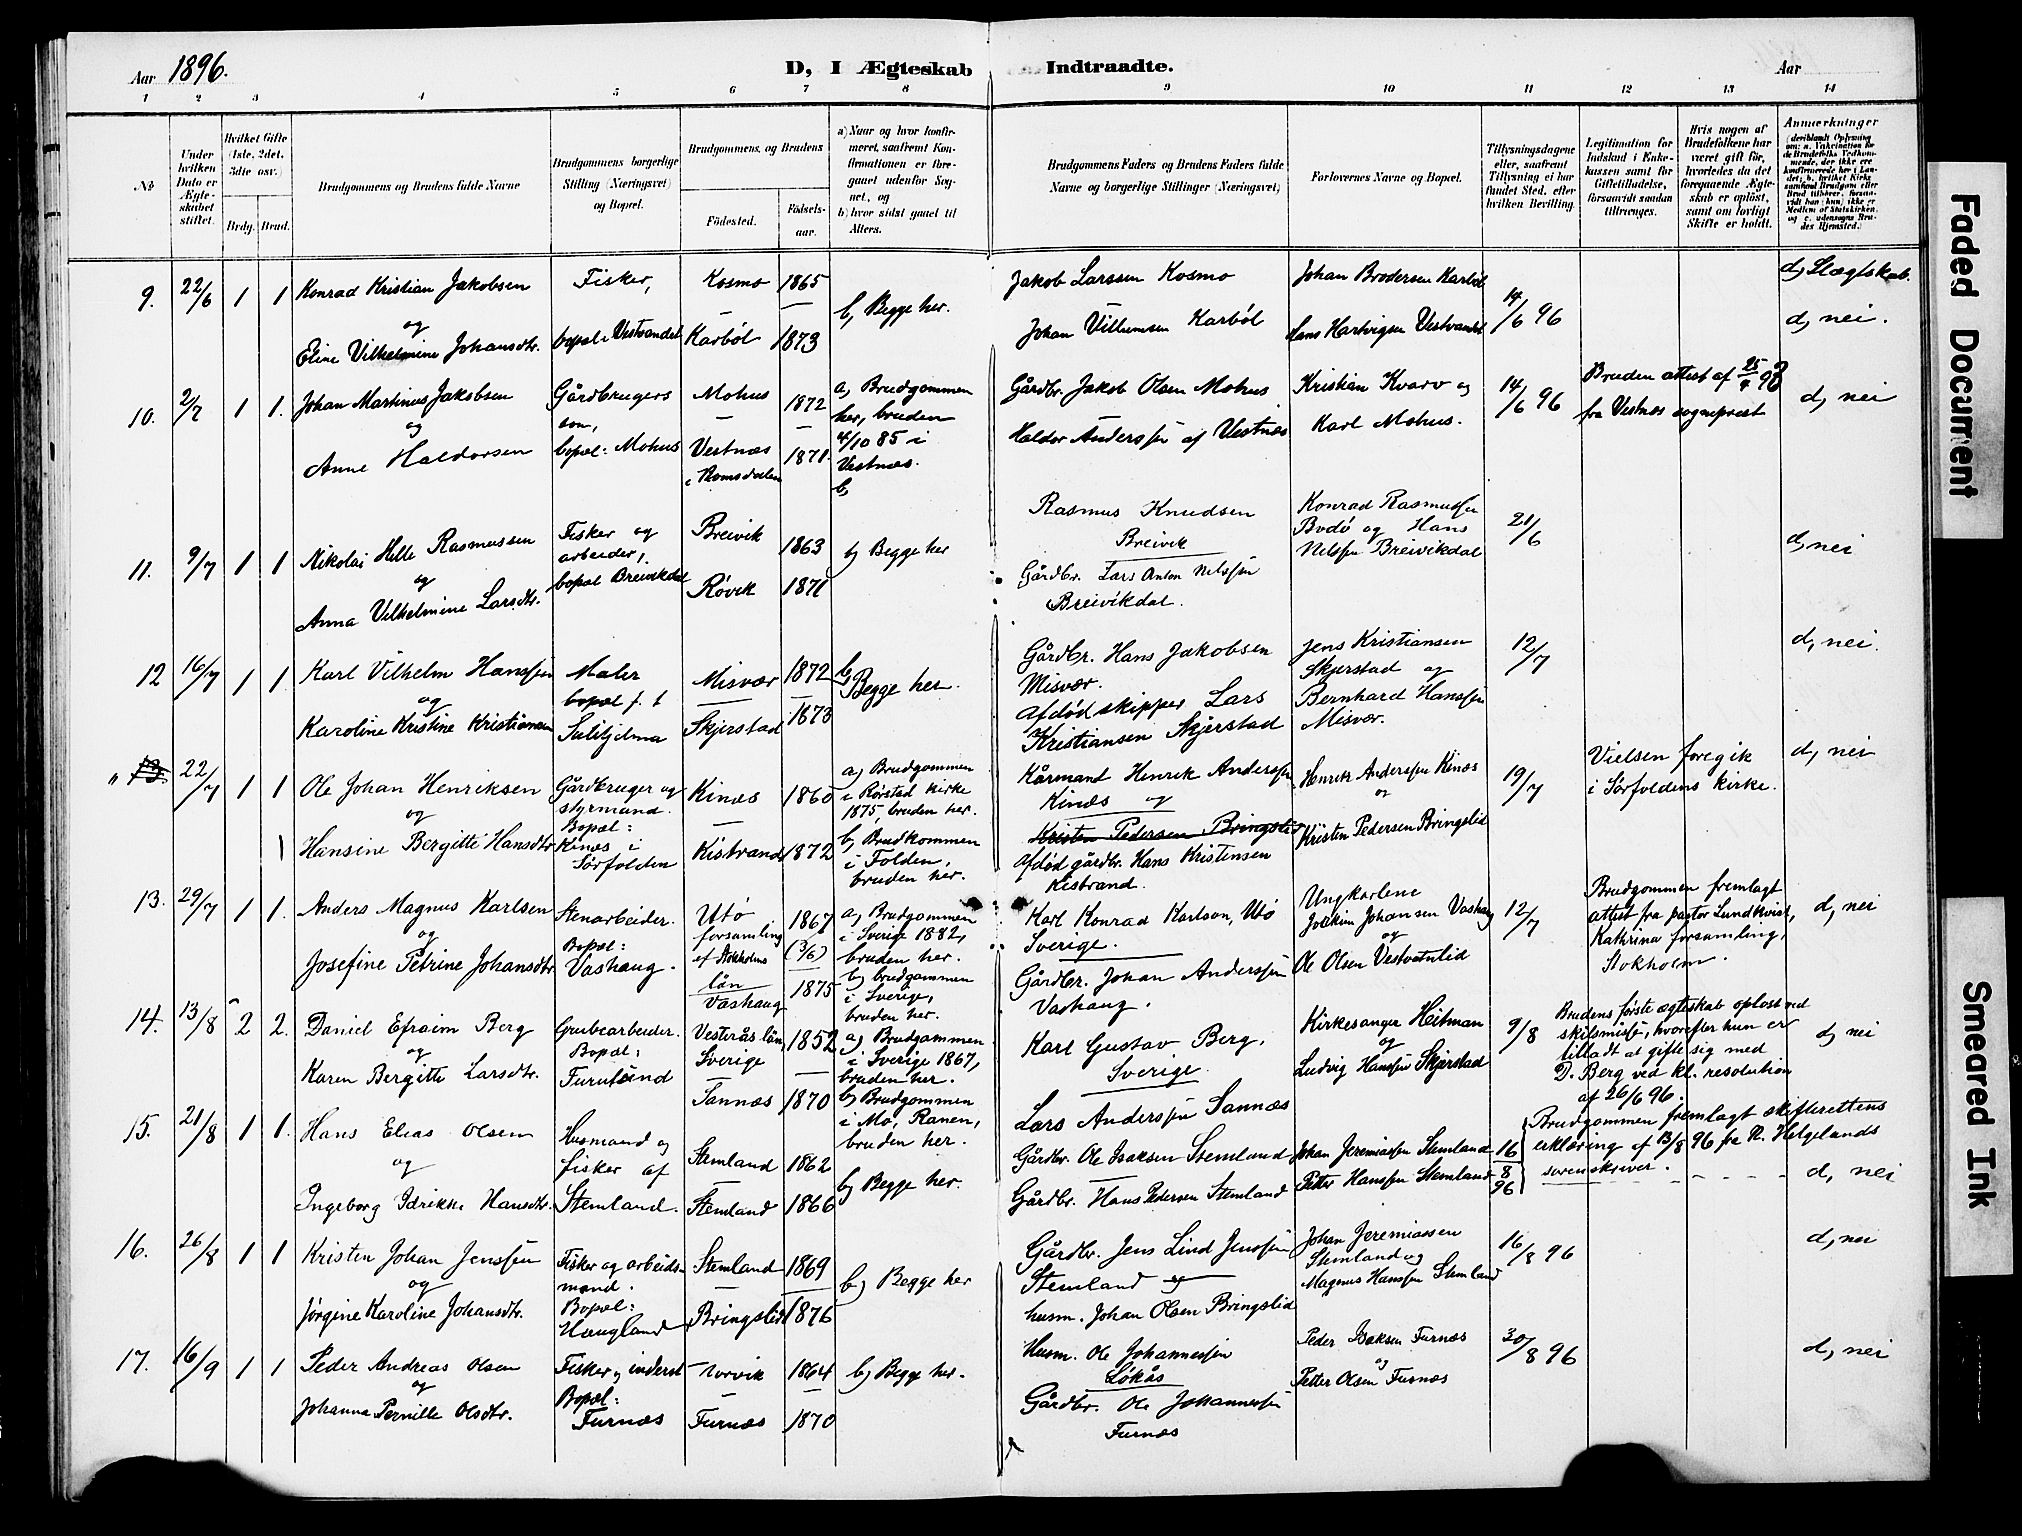 Aar 1896.
D, I Ægteskab Indtraadte.
Aar
1 2 3 4 5 6 7 8 9 10 11 12 13 14
No
Under hvilken Dato er Ægteskabet stiftet.
Hvilket Gifte (1ste, 2det, 3die osv.)
Brdg. Brud.
Brudgommens og Brudens fulde Navne
Brudgommens borgerlige Stilling (Næringsvei) og Bopæl.
Brudgommens og Brudens
Födested.
Födselsaar.
a) Naar og hvor konfirmeret, saafremt Konfirmationen er foregaaet udenfor Sognet, og
b) hvor sidst gaaet til Alters.
Brudgommens Faders og Brudens Faders fulde Navne og borgerlige Stillinger (Næringsvei)
Forlovernes Navne og Bopæl.
Tillysningsdagene eller, saafremt Tillysning ei har fundet Sted, efter hvilken Bevilling.
Legitimation for Indskud i Enkekassen samt for Giftetilladelse, forsaavidt saadan tiltrænges.
Hvis nogen af Brudefolkene har været gift för, hvorledes da det foregaaende Ægteskab er oplöst, samt om lovligt Skifte er holdt.
Anmærkninger
9. 22/6 1 1 Konrad Kristian Jakobsen
og
Eline Vilhelmine Johansdtr.
Fisker,
bopæl: Vestvandet
Kosmo 1865
Karböl 1873
b, Begge her.
Jakob Larssen Kosmo
Johan Vilhemsen Karböl
Johan Brodersen Karböl
Hans Hartvigsen Vestvandet
14/6 96
d, Slægtskab.
d, nei.
10. 2/7 1 1. Johan Martinus Jakobsen
og
Anne Haldorsen
Gårdbrugers
søn,
bopæl: Mohus
Mohus 1872
Vestnæs
i Romsdalen 1871.
a, Brudgommen
her, bruden
4/10 85 i
Vestnæs.
b,
Gårdbr. Jakob Olsen Mohus
Haldor Anderssen af Vestnæs
Kristian Kvarv og
Karl Mohus.
14/6 96
Bruden attest af
fra Vestnæs sogneprest
d, nei
11. 9/7 1 1 Nikolai Helle Rasmussen
og
Anna Vilhelmine Larsdtr.
Fisker og
arbeider,
bopæl Breivikdal
Breivik 1863
Røvik 1871
b) Begge her
Rasmus Knudsen
Breivik
Gårdbr. Lars Anton Nilssen
Breivikdal.
Konrad Rasmussen
Bodö og Hans
Nilssen Breivikdal
21/6
d, nei
12 16/7 1 1. Karl Vilhelm Hanssen
og
Karoline Kristine Kristiansen
Maler
bopæl f. t
Sulitjelma
Misvær 1872
Skjerstad 1873
b,
Begge her.
Gårdbr. Hans Jakobsen
Misvær.
Afdød skipper Lars
Kristiansen Skjerstad
Jens Kristiansen
Skjerstad og
Bernhard Hanssen
Misvær.
12/7
d, nei.
" 13. 22/7 1 1 Ole Johan Henriksen
og
Hansine Bergitte Hansdtr
Gårdbruger og
styrmand.
Bopæl:
Kinæs i
Sørfolden
Kinæs 1860
Kistrand 1872
a) Brudgommen
i Rørstad kirke
1875, bruden her.
b, Brudkommen
i Folden,
bruden her.
Kårmand Henrik Anderssen
Kinæs og
Kristen Pedersen Bringslid
Afdød gårdbr. Hans Kristensen
Kisbrand.
Henrik Anderssen Kinæs
og
Kristen Pedersen Bringslid
19/7
Vielsen foregik
i Sørfoldens kirke.
d, nei
13. 29/7 1 1. Anders Magnus Karlsen
og
Josefine Petrine Johansdtr
Stenarbeider.
Bopæl:
Vashaug.
Utö
forsamling
af Stokholms
län
Vashaug
1867
(3/6)
1875
a, Brudgommen
i Sverige 1882,
bruden her.
b) brudgommen
i Sverige,
bruden her.
Karl Konrad Karlson, Utö
Sverige.
Gårdbr. Johan Anderssen
Vashaug.
Ungkarlene
Joakim Johansen Vashaug
og
Ole Olsen Vestvatnlid
12/7
Brudgommen fremlagt
attest fra pastor Lundkvist,
Kathrina forsamling,
Stokholm.
d, nei
14. 13/8 2 2. Daniel Efraim Berg
og
Karen Bergitte Larsdtr.
Grubearbeider.
Bopæl:
Furulund
Vesterås län,
Sverige 1852
Sannæs 1870
a) Brudgommen
i Sverige 1867,
bruden her.
b) Brudgommen
i Mo, Ranen,
bruden her.
Karl Gustav Berg,
Sverige.
Lars Anderssen Sannæs
Kirkesanger Heitman
og
Ludvig Hanssen Skjerstad
9/8
Brudens første ægteskab opløst ved
skilsmisse, hvorefter hun er
tilladt at gifte sig med
D. Berg ved kl. resolution
af 26/6 96.
d, nei
15. 21/8 1 1. Hans Elias Olsen
og
Ingeborg Idrikke Hansdtr.
Husmand og
fisker af
Stemland.
Stemland 1862
Stemland 1866
b) Begge her.
Gårdbr. Ole Isaksen Stemland
Gårdbr. Hans Pedersen Stemland
Johan Jeremiassen Stemland
Petter Hanssen Stemland
16/8 96
Brudgommen fremlagt skifterettens
erklæring af 13/8 96 fra N. Helgelands
sorenskriver.
d, nei
16. 26/8 1 1 Kristen Johan Jenssen
og
Jörgine Karoline Johansdtr.
Fisker og arbeids-
mand.
Bopæl:
Haugland
Stemland 1869
Bringslid 1876
b) Begge her
Gårdbr. Jens Lind Jenssen
Stemland og
husm. Johan Olsen Bringslid
Johan Jeremiassen
Stemland og
Magnus Hanssen Stemland
16/8 96
d, nei
17. 16/9 1 1 Peder Andreas Olsen
og
Johanna Pernille Olsdtr.
Fisker, inderst
Bopæl:
Furnæs
Norvik 1864
Furnæs 1870
b) Begge her.
Husm. Ole Johannessen
Løkås
Gårdbr. Ole Johannessen
Furnæs
Peder Isaksen Furnæs
og
Petter Olsen Furnæs
30/8 96
d, nei
Faded Document
Smeared Ink